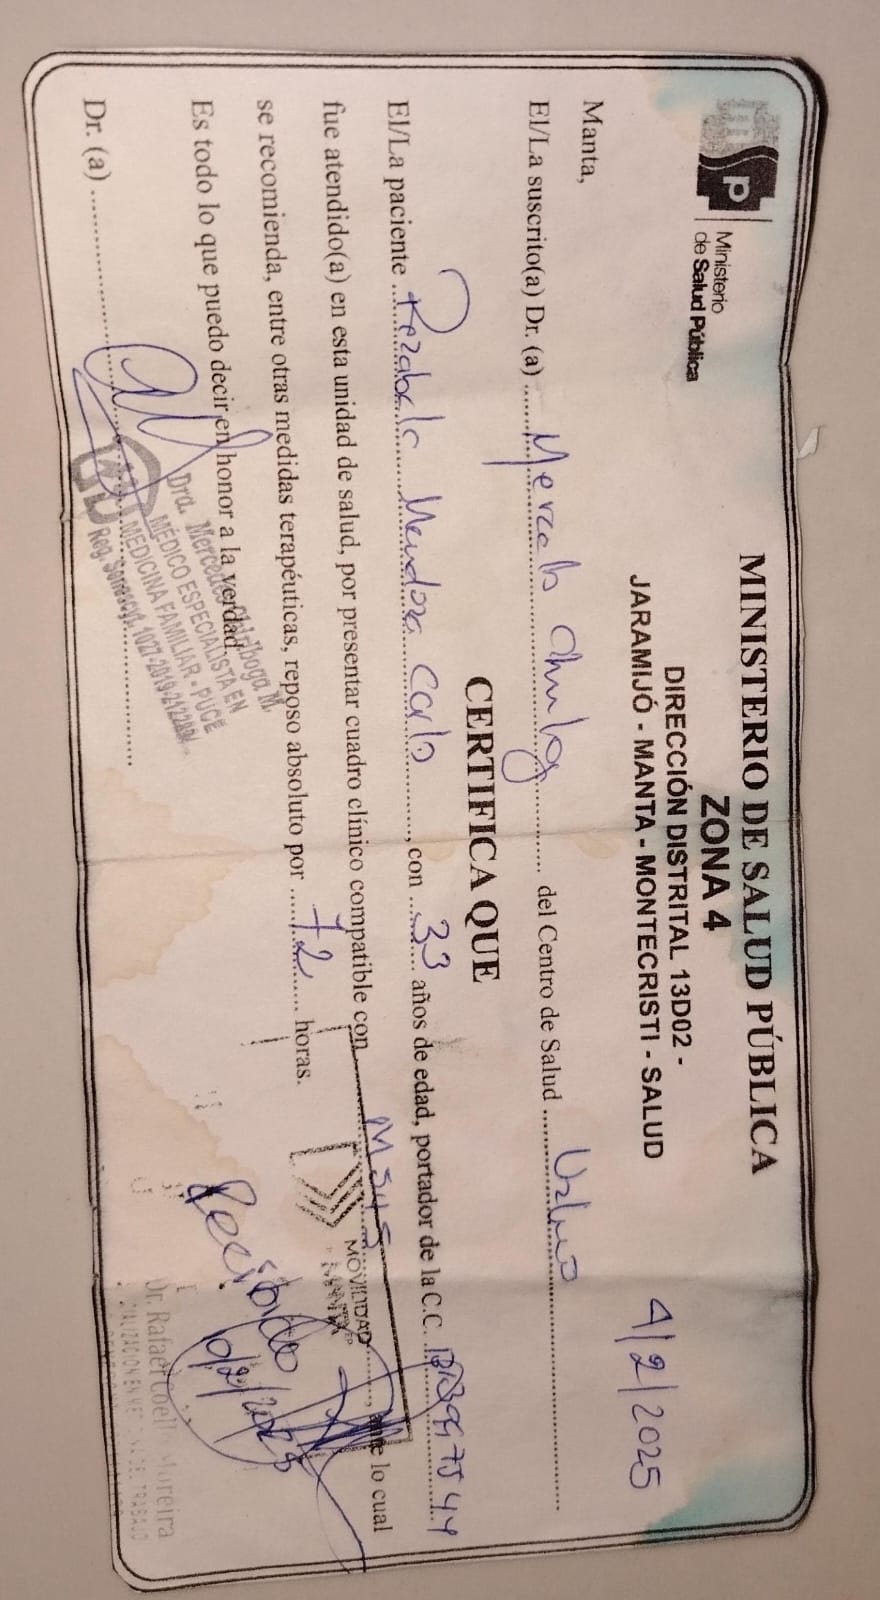 Ministerio
de Salud Pública
MINISTERIO DE SALUD PÚBLICA
ZONA 4
DIRECCIÓN DISTRITAL 13D02 -
JARAMIJÓ - MANTA - MONTECRISTI - SALUD
Manta, 4/2/2025
El/La suscrito(a) Dr. (a) ........ del Centro de Salud ........
CERTIFICA QUE
El/La paciente ........ Mendoza Carlo ........, con ... 33 ... años de edad, portador de la C.C. ........
fue atendido(a) en esta unidad de salud, por presentar cuadro clínico compatible con ........, ante lo cual
se recomienda, entre otras medidas terapéuticas, reposo absoluto por ... 72 ... horas.
Es todo lo que puedo decir en honor a la verdad.
Dr. (a) ........
Dra. Mercedes Chiriboga M.
MÉDICO ESPECIALISTA EN
MEDICINA FAMILIAR - PUCE
Reg. Senescyt.
MOVILIDAD
MANTA EP
Recibido
Dr. Rafael Coello Moreira
TRABAJO